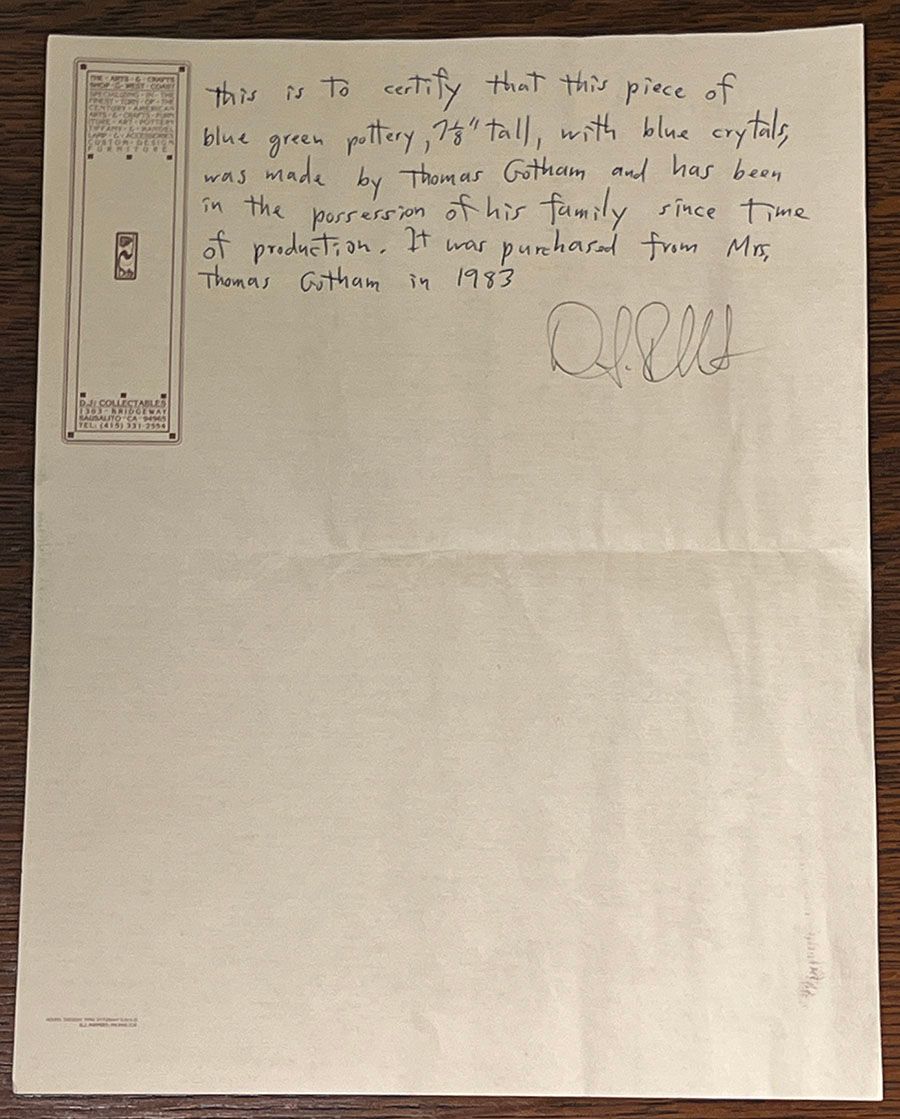 THE · ARTS · & · CRAFTS
SHOP · O · WEST · COAST
SPECIALIZING · IN · THE
FINEST · TURN · OF · THE
CENTURY · AMERICAN
ARTS · & · CRAFTS · FURN
ITURE · ART · POTTERY
TIFFANY · & · HANDEL
LAMP · & · ACCESSORIES
CUSTOM · DESIGN
FURNITURE
D.J: COLLECTABLES
1303 · BRIDGEWAY
SAUSALITO · CA · 94965
TEL: (415) 331-2554
This is to certify that this piece of
blue green pottery, 7⅛" tall, with blue crytals,
was made by Thomas Gotham and has been
in the possession of his family since time
of production. It was purchased from Mrs,
Thomas Gotham in 1983